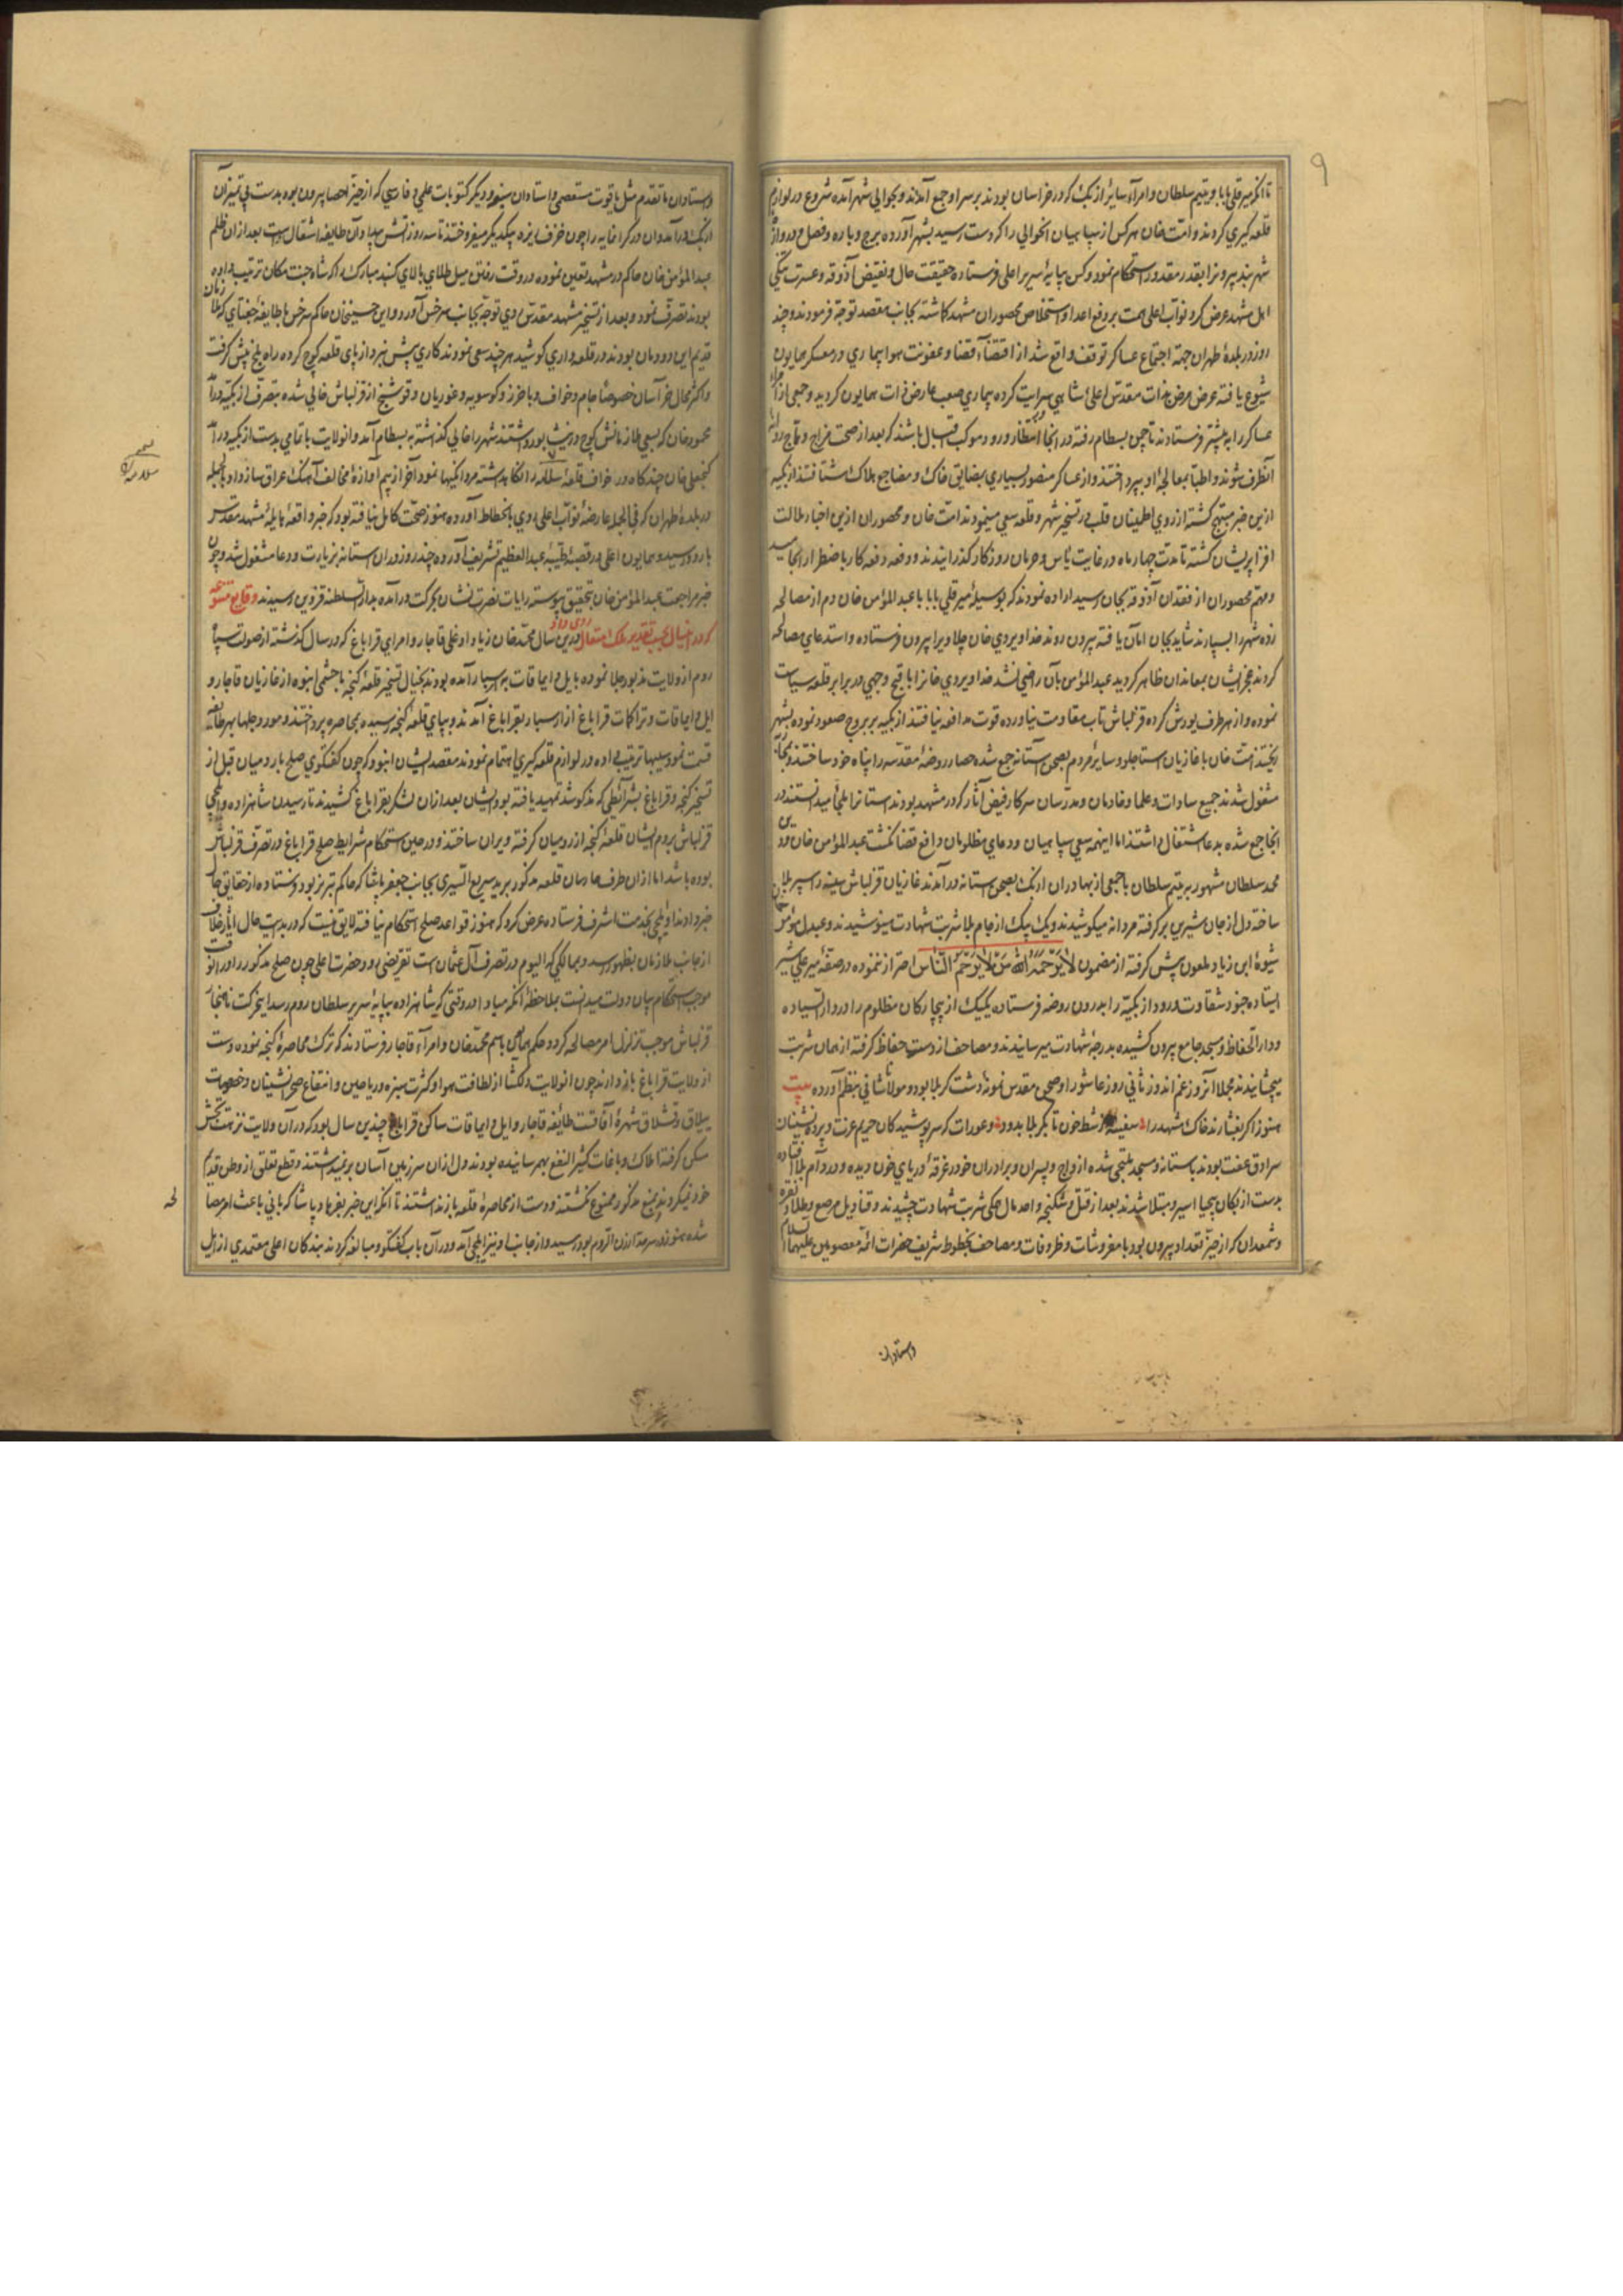 ۹
تا آنکه میر قلی بابا و یتیم سلطان و امرآء سایر ازبک که در خراسان بودند بر سر او جمع آمدند و بحوالی شهر آمده شروع در لوازم
قلعه کیری کردند و امت خان هر کس از سپاهیان انحوالی را که دست رسید بشهر آورده برج و باره و فصل و درواز
شهر بند بیرونرا بقدر مقدور استحکام نمود و کس بپایهٔ سریر اعلی فرستاده حقیقت حال و نقیض آذوقه و عسرت تنکی
اهل شهد عرض کرد نواب اعلی همت بر دفع اعدا و استخلاص محصوران مشهد کاشته بجانب مقصد توجه فرمودند و چند
روز در بلدهٔ طهران جهة اجتماع عساکر توقف واقع شد از اقتضآء قضا و عفونت هوا بیماری در معسکر همایون
شیوع یافته عرض مرض بذات مقدس اعلی شاهی سرایت کرده بیماری صعب عارض ذات همایون کردید و جمعی از
عساکر را به پیشتر فرستادند تا چمن بسطام رفته در انجا انتظار ورود موکب اقبال باشند که بعد از صحت مزاج و تاج
آنطرف شوند و اطبا بمعالجهٔ او بپرداختند و از عساکر منصور بسیاری بمضایق خاک و مضاجع هلاک شتافتند ازبکیه
ازین خبر مبتهج کشته از روی اطمینان قلب در تسخیر شهر و قلعه سعی مینمودند امت خان و محصوران ازین اخبار ملالت
افزا پریشان کشته تا مدت چهار ماه در غایت یأس و حرمان روزکار کذرانیدند و دفعه دفعه کار باضطرار انجامید
و مهم محصوران از فقدان آذوقه بجان رسید اراده نمودند که بوسیلهٔ میر قلی بابا با عبدالمؤمن خان دم از مصالحه
زده شهر را بسپارند شاید بجان امان یافته بیرون روند خدا ویردی خان چلاویرا بیرون فرستاده و استدعای مصالحه
کردند عجز ایشان بمعاندان ظاهر کردید عبدالمؤمن بآن راضی نشد خدا ویردی خانرا باقبح وجهی در برابر قلعه سیاست
نموده و از هر طرف یورش کرده قزلباش تاب مقاومت نیاورده قوت مدافعه نیافتند ازبکیه بر بروج صعود نموده بشهر
ریختند امت خان با غازیان استاجلو و سایر مردم بصحن آستانه جمع شده حصار روضهٔ مقدسه را پناه خود ساختند
مشغول شدند جمیع سادات و علما و خادمان و مدرسان سرکار فیض آثار که در مشهد بودند استانرا ملجأ میدانستند در
انجا جمع شده بدعا اشتغال داشتند اما اینهمه سعی سپاهیان و دعای مظلومان دافع قضا نکشت عبدالمؤمن خان
محمد سلطان مشهور به یتیم سلطان با جمعی از بهادران ازبک بصحن استانه در آمدند غازیان قزلباش سینه را سپر بلا
ساخته دل از جان شیرین بر کرفته مردانه میکوشیدند و یک یک از جام بلا شربت شهادت مینوشیدند و عبدالمؤمن
شیوهٔ ابن زیاد ملعون پیش کرفته از مضمون لا یَرْحَمُ اللّٰه مَن لا یَرْحَمُ النّاس احتراز ننموده در صفهٔ میر علی شیر
ایستاده جنود شقاوت ورود ازبکیه را بدرون روضه فرستاده یکیک از بیچارکان مظلوم را در دار السیاده
و دار الحفاظ و مسجد جامع بیرون کشیده بدرجهٔ شهادت میرسانیدند و مصاحف از دست حفاظ کرفته از همان شربت
میچشانیدند مجملا آنروز غم اندوز ثانی روز عاشورا و صحن مقدس نمونهٔ دشت کربلا بود و مولانا شانی بنظم آورده بیت
هنوز اکر بفشارند خاک مشهد را سفینه از شط خون تا بکربلا بدود و عورات که سر پوشیدکان حریم عزت و پرده نشینان
سرادق عفت بودند باستانه و مسجد ملتجی شده ازواج و پسران و برادران خود را غرقهٔ دریای خون دیده و در دام بلا افتاده
بدست ازبکان بیحیا اسیر و مبتلا شدند بعد از قتل و شکنجه واحد مال همکی شربت شهادت چشیدند و قنادیل مرصع و طلا و نقره
و شمعدان که از حیز تعداد بیرون بود با مفروشات و ظروفات و مصاحف بخطوط شریف حضرات ائمه معصومین علیهم السلام
و استادان
و استادان ما تقدم مثل یاقوت مستعصمی و استادان سته و دیکر کتوبات علمی و فارسی که از حیز احصا بیرون بود بدست بی تمیزان
ازبک در آمد و ان در کرانمایه را چون خزف ریزه بیکدیکر میفروختند تا سه روز آتش بیداد آن طایفه اشتعال داشت بعد از ان ظلم
عبدالمؤمن خان حاکم در مشهد تعین نموده در وقت رفتن میل طلای بالای کنبد مبارک را که شاه جنت مکان ترتیب داده
بودند تصرف نمود و بعد از تسخیر مشهد مقدس روی توجه بجانب سرخس آورد و این حسینخان حاکم سرخس با طایفهٔ جغتای که ملازمان
قدیم این دودمان بودند در قلعه داری کوشید هر چند سعی نمودند کاری پیش نبرد از پای قلعه کوچ کرده راه بلخ پیش کرفت
و اکثر محال خراسان خصوصا جام و خواف و باخرز و کوسویه و غوریان و فوشنج از قزلباش خالی شده بتصرف ازبکیه در آمد
محمود خان که بسعی ملازمانش کوچ در نیشابور داشتند شهر را خالی کذاشته به بسطام آمد و انولایت با تمامی بدست ازبکیه در آمد
کنجعلی خان چند کاه در خواف قلعهٔ سلامه را نکاهداشته مردانکیها نمود آخر از بیم آوازهٔ مخالف آهنک عراق ساز داد بالجمله
در بلدهٔ طهران که فی الجمله عارضهٔ نواب اعلی روی بانحطاط آورده هنوز صحت کامل نیافته بود که خبر واقعهٔ هایلهٔ مشهد مقدس
باردو رسید و همایون اعلی در قصبهٔ طیبهٔ عبدالعظیم تشریف آورده چند روز در ان استانه بزیارت و دعا مشغول شد و چون
خبر مراجعت عبدالمؤمن خان بتحقیق پیوست رایات نصرت نشان بحرکت در آمده بدار السلطنه قزوین رسیدند وقایع متنوعه
که در انسال بحسب تقدیر ملک متعال روی داد درین سال محمد خان زیاد اوغلی قاجار و امرای قراباغ که در سال کذشته از صولت سپاه
روم از ولایت مذبور جلا نموده بایل و ایماقات بارسبار آمده بودند بخیال تسخیر قلعهٔ کنجه با حشمی انبوه از غازیان قاجار و
ایل و ایماقات و تراکمات قراباغ از ارسبار بقراباغ آمدند و بپای قلعهٔ کنجه رسیده بمحاصره پرداختند و مورچلها بهر طایفه
قسمت نمود سیبها ترتیب داده در لوازم قلعه کیری اهتمام نمودند مقصد ایشان انبود که چون کفتکوی صلح با رومیان قبل از
تسخیر کنجه و قراباغ بشرآئطی که مذکور شد تمهید یافته بود ایشان بعد از ان لشکر بقراباغ کشیدند تا رسیدن شاهزاده و ایلچی
قزلباش بروم ایشان قلعهٔ کنجه از رومیان کرفته ویران ساختند و در حین استحکام شرایط صلح قراباغ در تصرف قزلباش
بوده باشد اما از ان طرف حارسان قلعه مذکور برید سریع السیری بجانب جعفر پاشا که حاکم تبریز بود فرستاده از حقایق حال
خبر دادند او ایلچی بخدمت اشرف فرستاده عرض کرد که هنوز قواعد صلح استحکام نیافته لایق نیست که در بدایت حال آثار خلاف
از جانب ملازمان بظهور رسد و بممالکی که الیوم در تصرف آل عثمان است تعرضی رود حضرت اعلی چون صلح مذکور را در انوقت
موجب استحکام بنیان دولت میدانست بملاحظهٔ آنکه مبادا در وقتی که شاهزاده بپایهٔ سریر سلطان روم رسد اینحرکت ناهنجار
قزلباش موجب تزلزل امر مصالحه کردد حکم همایون باسم محمد خان و امرآء قاجار فرستادند که ترک محاصرهٔ کنجه نموده دست
از ولایت قراباغ باز دارند چون انولایت دلکشا از لطافت هوا و کثرت سبزه و ریاحین و انتفاع صحرا نشینان و خصوصیات
ییلاق و قشلاق شهرهٔ آفاقست طائفه قاجار و ایل و ایماقات ساکن قراباغ چندین سال بود که در آن ولایت نزهت بخش
سکن کرفته املاک و باغات کثیر النفع بهم رسانیده بودند دل از ان سرزمین آسان بر نمیداشتند و قطع تعلق از وطن قدیم
خود نمیکردند بمنع مذکور ممنوع نکشتند و دست از محاصرهٔ قلعه باز نداشتند تا آنکه این خبر بفرهاد پاشا که بانی باعث امر مصالحه
شده هنوز در سرحد ارزن الروم بود رسید و از جانب او نیز ایلچی آمد و در آن باب کفتکو و مبالغه کردند بندکان اعلی معتمدی از اهل